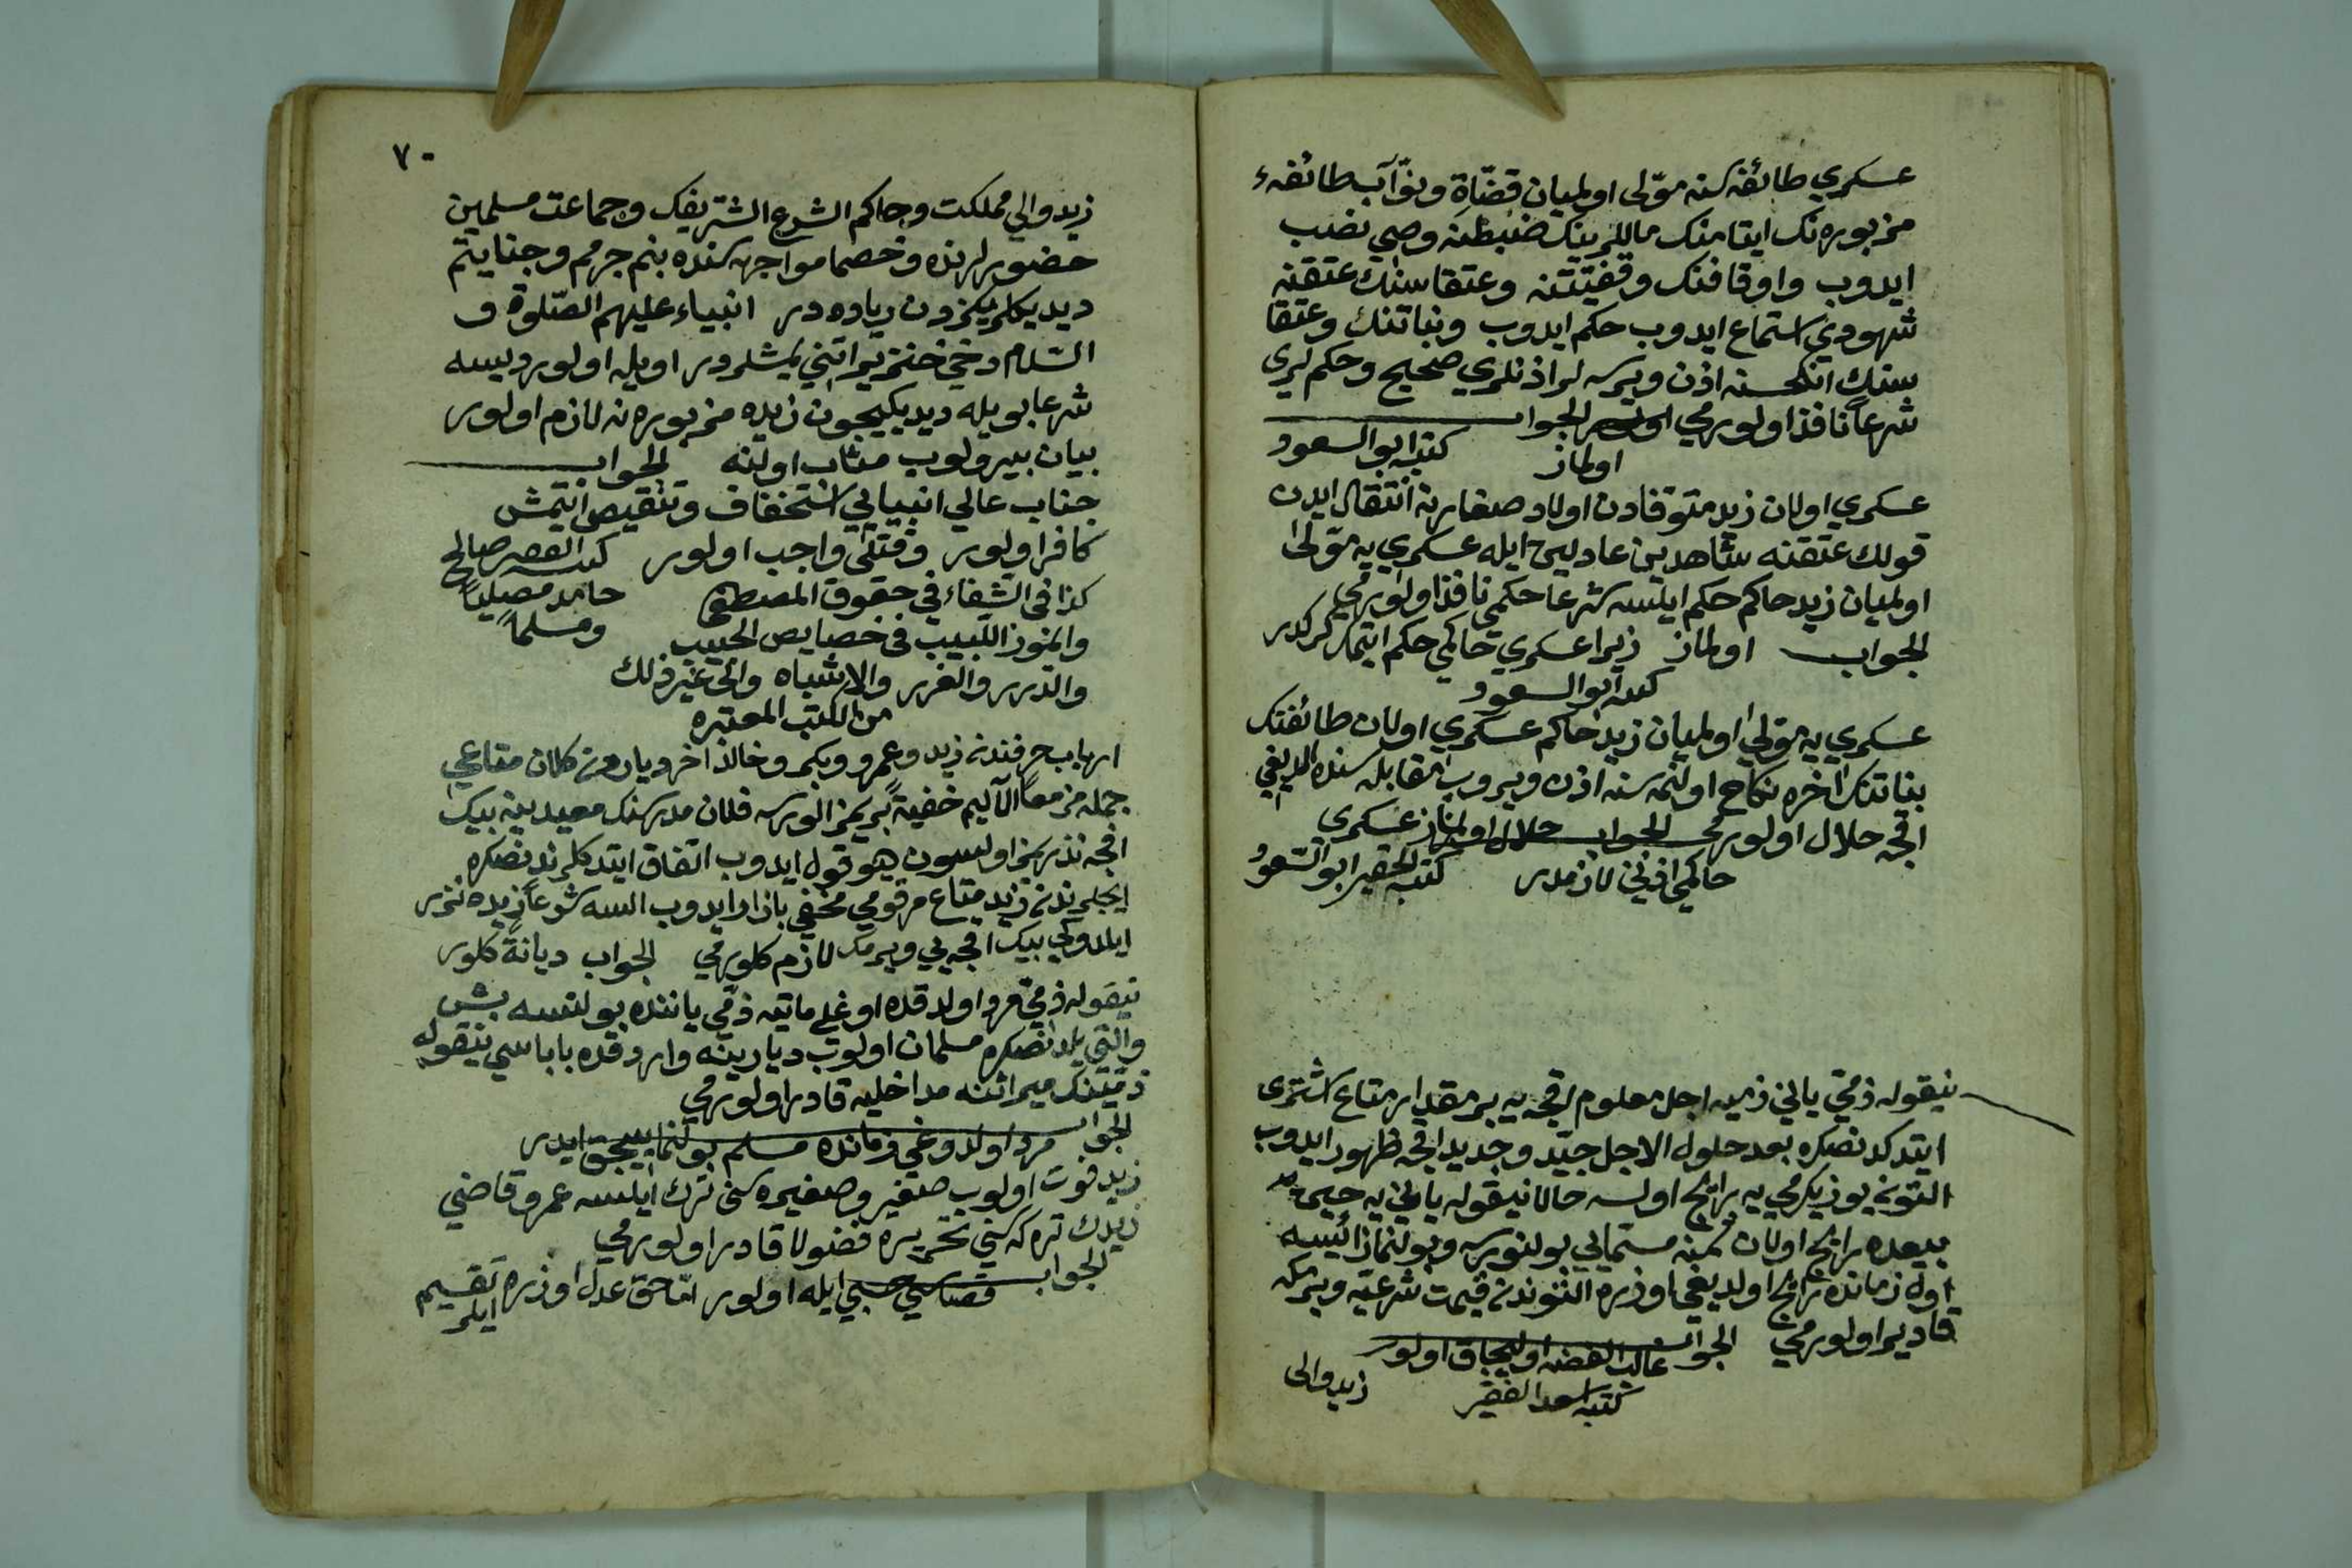 عسكري طائفه سنه مولى اولميان قضاة ونواب طائفهء
مزبوره نك ايتامنك ماللرينك ضبطنه وصي نصب
ايدوب واوقافنك وقفيتنه وعتقا سنك عتقنه
شهودي استماع ايدوب حكم ايدوب وبناتنك وعتقا
سنك انكحسنه اذن ويرسه لر اذنلري صحيح وحكملري
شرعاً نافذ اولورمي الجواب
اولماز كتبه ابو السعود
عسكري اولان زيد متوفادن اولاد صغارينه انتقال ايدن
قولك عتقنه شاهدين عادلين ايله عسكري يه مولى
اولميان زيد حاكم حكم ايلسه شرعا حكمي نافذ اولورمي
الجواب اولماز زيرا عسكري حاكمي حكم ايتمك كركدر
كتبه ابو السعود
عسكري يه مولى اولميان زيد حاكم عسكري اولان طائفنك
بناتنك اخره نكاح اولنمه سنه اذن ويروب مقابله سنده الديغي
اقچه حلال اولورمي الجواب حلال اولماز عسكري
حاكمي اذني لازمدر كتبه الحقير ابو السعود
نيقوله ذمي ياني ذميه اجل معلوم اقچه يه بر مقدار متاع اشترى
ايتدكدنصكره بعد حلول الاجل جيد وجديد اقچه ظهور ايدوب
التون يوز يكرمي يه رايج اولسه حالا نيقوله ياني يه حين
بيعده رايج اولان ثمنه مستمالي بولنورسه وبولنماز ايسه
اول زمانده رايج اولديغي اوزره التوندن قيمت شرعيه ويرمكه
قادر اولورمي الجواب غالب الفضه اوليجاق اولور
كتبه اسعد الفقير
زيد والى
٧٠
زيد والي مملكت وحاكم الشرع الشريفك وجماعت مسلمين
حضورلرنده وخصما مواجهه سنده بنم جرمم وجنايتم
ديديكلريكزدن زياده در انبياء عليهم الصلوة و
السلام دخي خنزير اتني يمشلردر اويله اولور ديسه
شرعا بويله ديديكيچون زيد مزبوره نه لازم اولور
بيان بيورلوب مثاب اولنه الجواب
جناب عالي انبيايي استخفاف وتنقيص ايتمش
كافر اولور وقتلي واجب اولور كتبه الفقير صالح
كذا في الشفاء في حقوق المصطفى حامداً مصلياً
والمنوز اللبيب في خصايص الحبيب ومسلماً
والدرر والغرر والاشباه والى غير ذلك
من الكتب المعتبره
ارباب حرفندن زيد وعمرو وبكر وخالد اخر دياردن كلان متاعي
جمله مز معاً الآليم خفيةً بريمز الورسه فلان مدرسه نك معيدينه بيك
اقچه نذريمز اولسون ديو قول ايدوب اتفاق ايتدكلرندنصكره
ايچلرندن زيد متاع مرقومي مخفي بازار ايدوب السه شرعاً زيده نذر
ايلدوكي بيك اقچه يي ويرمك لازم كلورمي الجواب ديانةً كلور
نيقوله ذمي مرد اولدقده اوغلي مانيه ذمي ياننده بولنسه بش
والتي يلدنصكره مسلمان اولوب ديارينه واردقده باباسي نيقوله
ذمينك ميراثنه مداخليه قادر اولورمي
الجواب مرد اولدوغي زمانده مسلم بولنماييجق ايدر
زيد فوت اولوب صغير وصغيره سني ترك ايلسه عمرو قاضي
زيدك تركه سني تحريره فضولا قادر اولورمي
الجواب قضاسي حسبي ايله اولور اما حق عدل اوزره تقسيم
ايلر